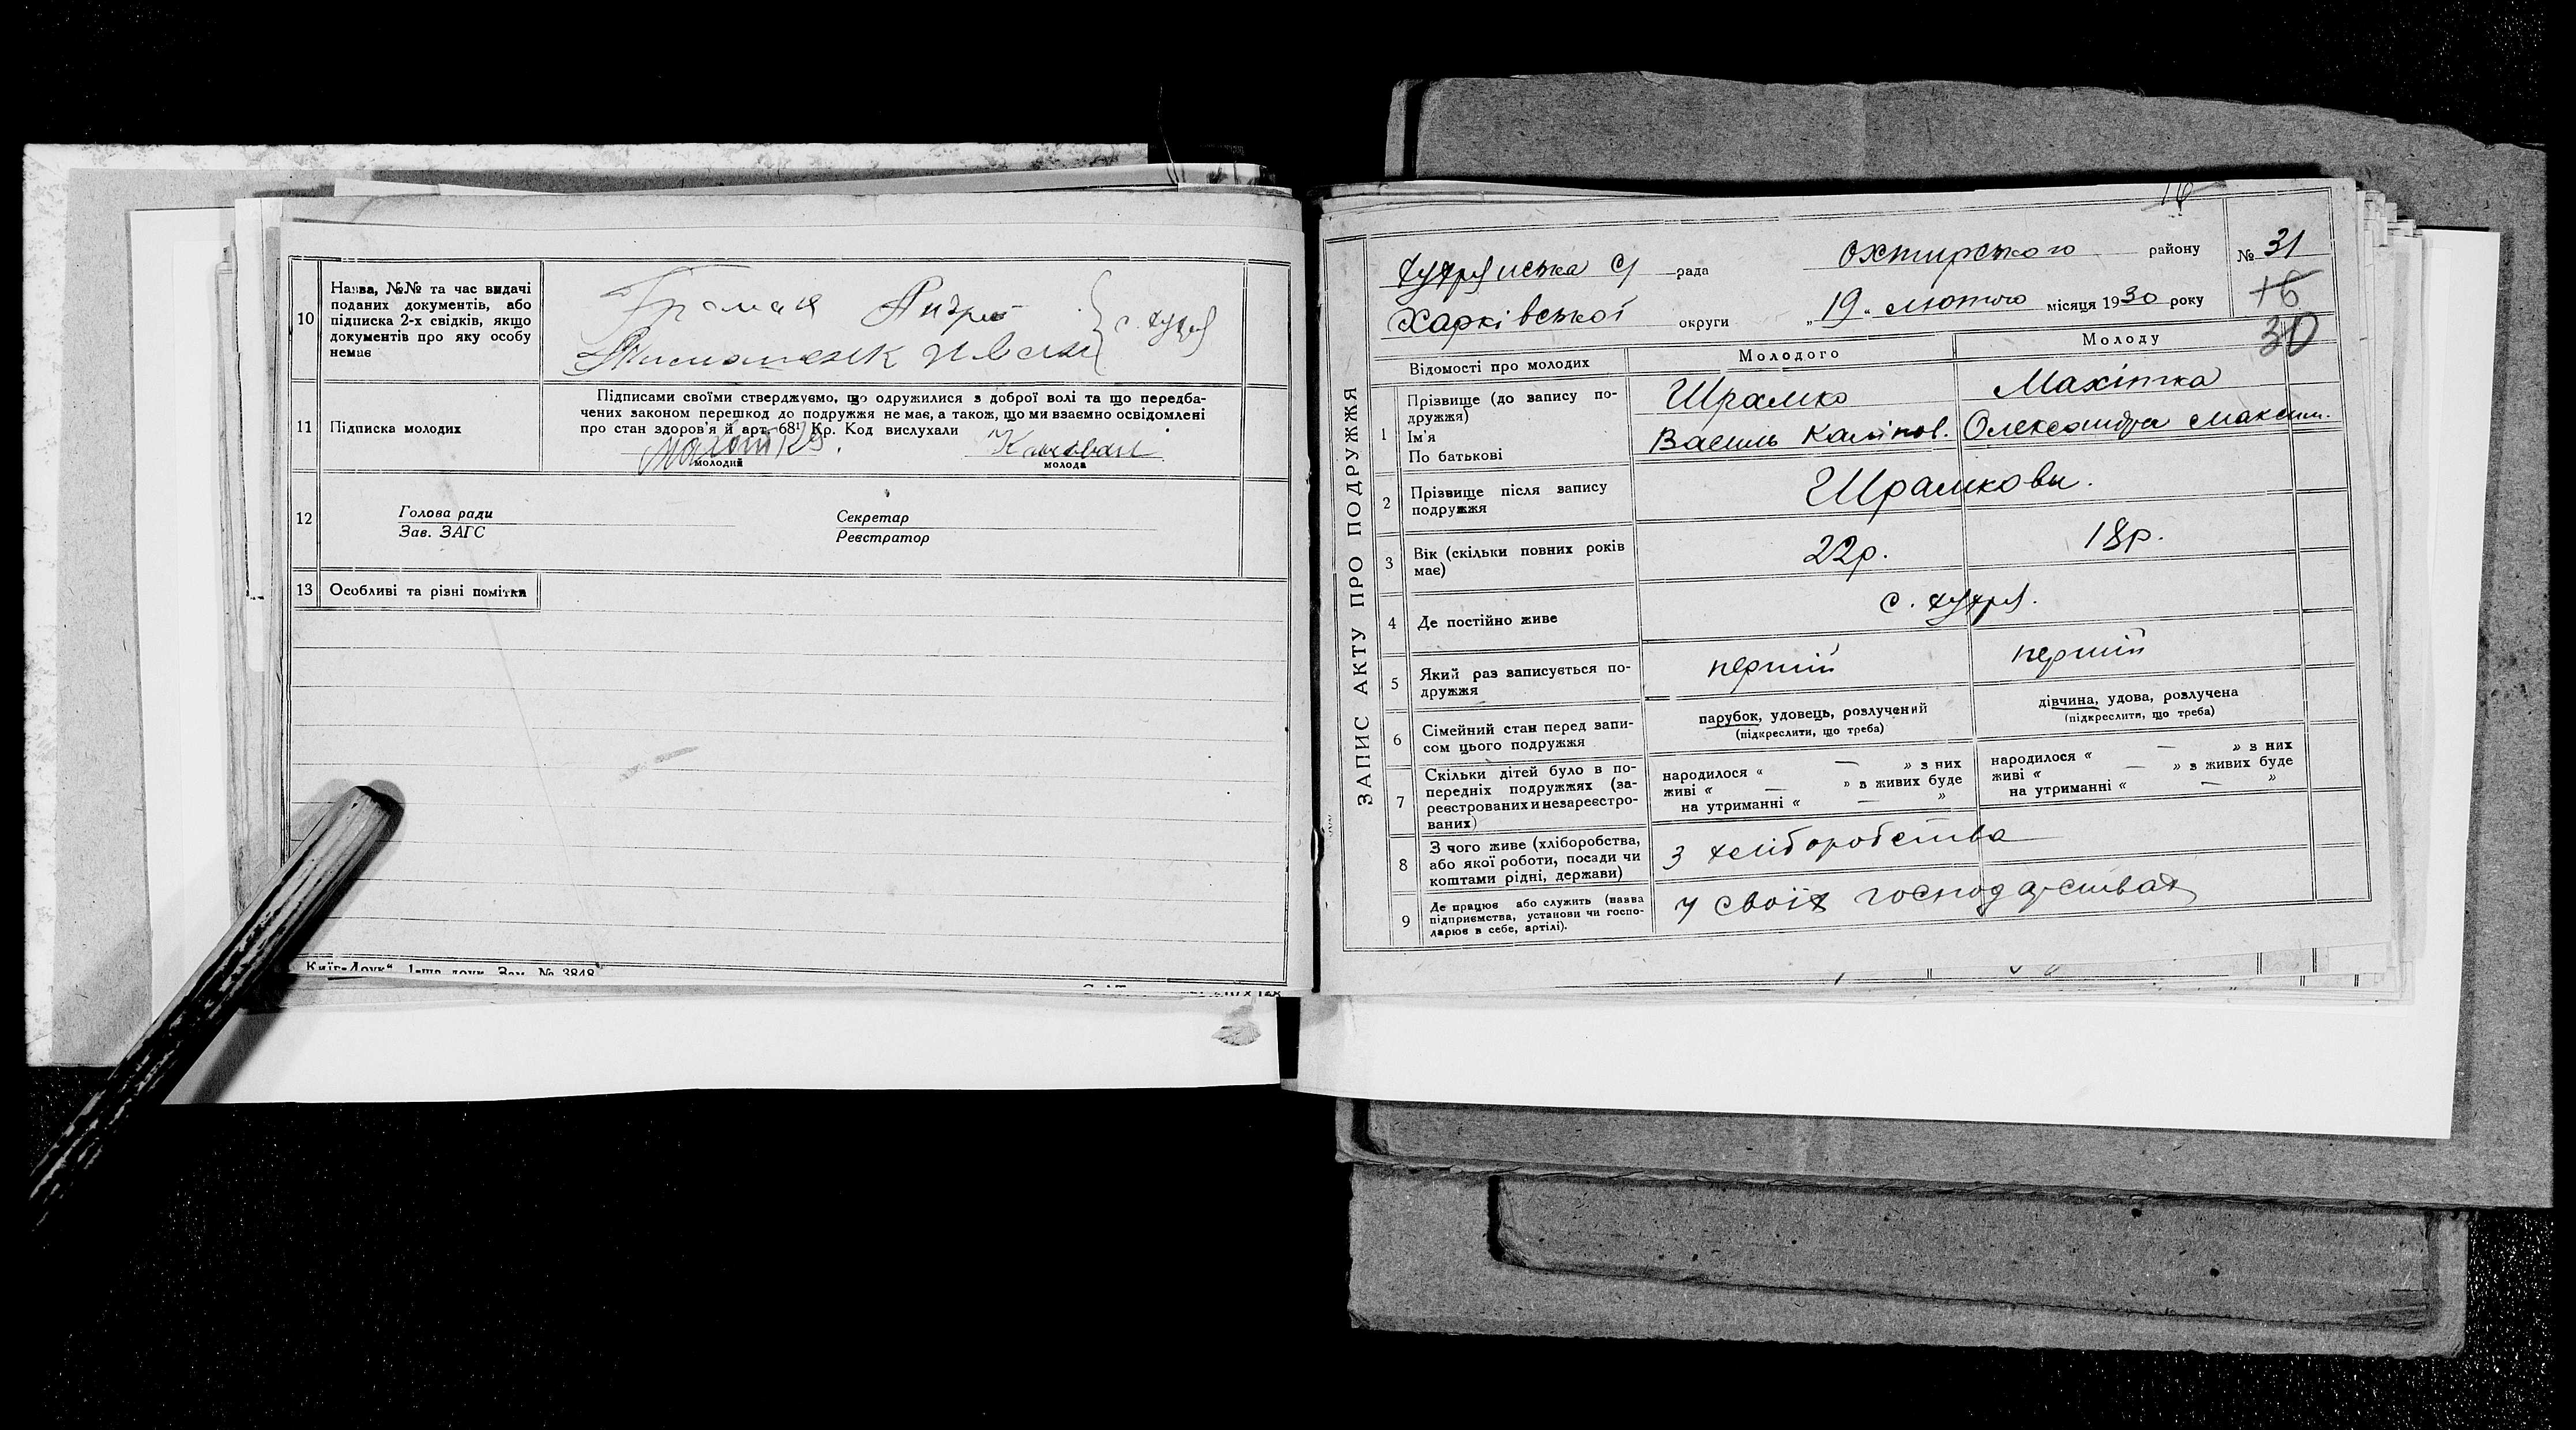 10
Назва, №№ та час видачі
поданих документів, або
підписка 2-х свідків, якщо
документів про яку особу
немає
Іван
с. Хухря
11
Підписка молодих
Підписами своїми стверджуємо, що одружилися з доброї волі та що передба-
чених законом перешкод до подружжя не має, а також, що ми взаємно освідомлені
про стан здоров'я й арт. 68¹ Кр. Код вислухали
молодий
молода
12
Голова ради
Зав. ЗАГС
Секретар
Реєстратор
13
Особливі та різні помітки
1-ша друк. Зам. № 3848
ЗАПИС АКТУ ПРО ПОДРУЖЖЯ
16
Хухрянська С/ рада Охтирського району
№ 31
Харківської округи „19“ лютого місяця 1930 року
16
30
Відомості про молодих
Молодого
Молоду
1
Прізвище (до запису по-
дружжя)
Ім'я
По батькові
Шрамко
Василь Каліпов.
Махітка
Олександра Максим.
2
Прізвище після запису
подружжя
Шрамкови.
3
Вік (скільки повних років
має)
22р.
18р.
4
Де постійно живе
с. Хухря.
5
Який раз записується по-
дружжя
перший
перший
6
Сімейний стан перед запи-
сом цього подружжя
парубок, удовець, розлучений
(підкреслити, що треба)
дівчина, удова, розлучена
(підкреслити, що треба)
7
Скільки дітей було в по-
передніх подружжях (за-
реєстрованих и незареєстро-
ваних)
народилося « — » з них
живі « — » з живих буде
на утриманні « — »
народилося « — » з них
живі « — » з живих буде
на утриманні « — »
8
З чого живе (хліборобства,
або якої роботи, посади чи
коштами рідні, держави)
З хліборобства
9
Де працює або служить (назва
підприємства, установи чи госпо-
дарює в себе, артілі).
У своїх господарствах